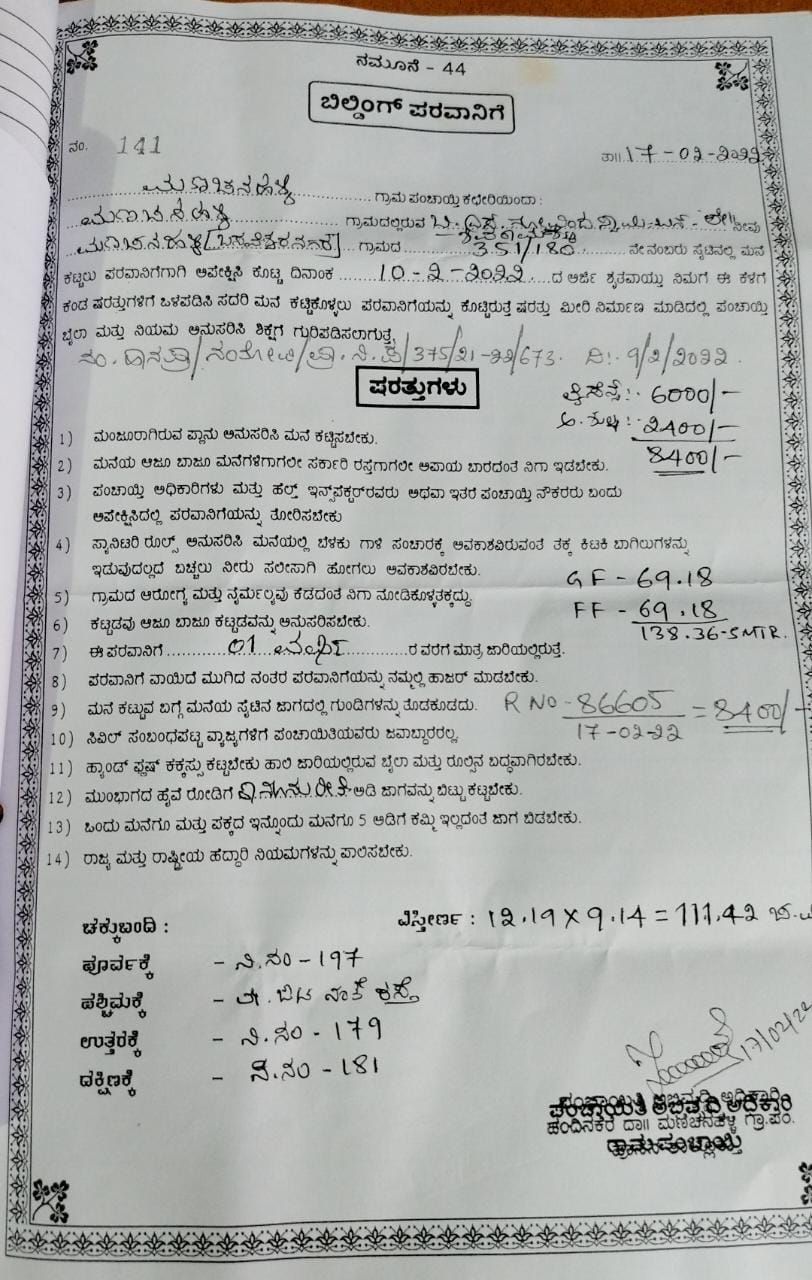 ನಮೂನೆ - 44
ಬಿಲ್ಡಿಂಗ್ ಪರವಾನಿಗೆ
ನಂ. 141
ತಾ|| 17-02-2022
ಗ್ರಾಮ ಪಂಚಾಯ್ತಿ ಕಛೇರಿಯಿಂದಾ :
ಗ್ರಾಮದಲ್ಲಿರುವ ನೀವು
[ಬಸವೇಶ್ವರನಗರ] ಗ್ರಾಮದ 351/180 ನೇ ನಂಬರು ಸೈಟಿನಲ್ಲಿ ಮನೆ
ಕಟ್ಟಲು ಪರವಾನಿಗೆಗಾಗಿ ಅಪೇಕ್ಷಿಸಿ ಕೊಟ್ಟ ದಿನಾಂಕ 10-2-2022 ದ ಅರ್ಜಿ ಶೃತವಾಯ್ತು ನಿಮಗೆ ಈ ಕೆಳಗೆ
ಕಂಡ ಷರತ್ತುಗಳಿಗೆ ಒಳಪಡಿಸಿ ಸದರಿ ಮನೆ ಕಟ್ಟಿಕೊಳ್ಳಲು ಪರವಾನಿಗೆಯನ್ನು ಕೊಟ್ಟಿರುತ್ತೆ ಷರತ್ತು ಮೀರಿ ನಿರ್ಮಾಣ ಮಾಡಿದಲ್ಲಿ ಪಂಚಾಯ್ತಿ
ಬೈಲಾ ಮತ್ತು ನಿಯಮ ಅನುಸರಿಸಿ ಶಿಕ್ಷೆಗೆ ಗುರಿಪಡಿಸಲಾಗುತ್ತೆ
375/21-22/673. ದಿ:- 9/2/2022.
ಷರತ್ತುಗಳು
ಲೈಸೆನ್ಸ್ :- 6000/-
ಅ. ಶುಲ್ಕ :- 2400/-
8400/-
1) ಮಂಜೂರಾಗಿರುವ ಪ್ಲಾನು ಅನುಸರಿಸಿ ಮನೆ ಕಟ್ಟಿಸಬೇಕು.
2) ಮನೆಯ ಆಜೂ ಬಾಜೂ ಮನೆಗಳಿಗಾಗಲೀ ಸರ್ಕಾರಿ ರಸ್ತೆಗಾಗಲೀ ಅಪಾಯ ಬಾರದಂತೆ ನಿಗಾ ಇಡಬೇಕು.
3) ಪಂಚಾಯ್ತಿ ಅಧಿಕಾರಿಗಳು ಮತ್ತು ಹೆಲ್ತ್ ಇನ್ಸ್‌ಪೆಕ್ಟರ್‌ರವರು ಅಥವಾ ಇತರೆ ಪಂಚಾಯ್ತಿ ನೌಕರರು ಬಂದು
ಅಪೇಕ್ಷಿಸಿದಲ್ಲಿ ಪರವಾನಿಗೆಯನ್ನು ತೋರಿಸಬೇಕು
4) ಸ್ಯಾನಿಟರಿ ರೂಲ್ಸ್ ಅನುಸರಿಸಿ ಮನೆಯಲ್ಲಿ ಬೆಳಕು ಗಾಳಿ ಸಂಚಾರಕ್ಕೆ ಅವಕಾಶವಿರುವಂತೆ ತಕ್ಕ ಕಿಟಕಿ ಬಾಗಿಲುಗಳನ್ನು
ಇಡುವುದಲ್ಲದೆ ಬಚ್ಚಲು ನೀರು ಸಲೀಸಾಗಿ ಹೋಗಲು ಅವಕಾಶವಿರಬೇಕು.
GF - 69.18
5) ಗ್ರಾಮದ ಆರೋಗ್ಯ ಮತ್ತು ನೈರ್ಮಲ್ಯವು ಕೆಡದಂತೆ ನಿಗಾ ನೋಡಿಕೊಳ್ಳತಕ್ಕದ್ದು.
FF - 69.18
6) ಕಟ್ಟಡವು ಆಜೂ ಬಾಜೂ ಕಟ್ಟಡವನ್ನು ಅನುಸರಿಸಬೇಕು.
138.36-SMTR.
7) ಈ ಪರವಾನಿಗೆ 01 ವರ್ಷ ರ ವರೆಗೆ ಮಾತ್ರ ಜಾರಿಯಲ್ಲಿರುತ್ತೆ.
8) ಪರವಾನಿಗೆ ವಾಯಿದೆ ಮುಗಿದ ನಂತರ ಪರವಾನಿಗೆಯನ್ನು ನಮ್ಮಲ್ಲಿ ಹಾಜರ್ ಮಾಡಬೇಕು.
9) ಮನೆ ಕಟ್ಟುವ ಬಗ್ಗೆ ಮನೆಯ ಸೈಟಿನ ಜಾಗದಲ್ಲಿ ಗುಂಡಿಗಳನ್ನು ತೊಡಕೂಡದು.
R No - 86605 = 8400/-
17-02-22
10) ಸಿವಿಲ್ ಸಂಬಂಧಪಟ್ಟ ವ್ಯಾಜ್ಯಗಳಿಗೆ ಪಂಚಾಯಿತಿಯವರು ಜವಾಬ್ದಾರರಲ್ಲ.
11) ಹ್ಯಾಂಡ್ ಫ್ಲಷ್ ಕಕ್ಕಸ್ಸು ಕಟ್ಟಬೇಕು ಹಾಲಿ ಜಾರಿಯಲ್ಲಿರುವ ಬೈಲಾ ಮತ್ತು ರೂಲ್ಸಿನ ಬದ್ಧವಾಗಿರಬೇಕು.
12) ಮುಂಭಾಗದ ಹೈವೆ ರೋಡಿಗೆ ಅಡಿ ಜಾಗವನ್ನು ಬಿಟ್ಟು ಕಟ್ಟಬೇಕು.
13) ಒಂದು ಮನೆಗೂ ಮತ್ತು ಪಕ್ಕದ ಇನ್ನೊಂದು ಮನೆಗೂ 5 ಅಡಿಗೆ ಕಮ್ಮಿ ಇಲ್ಲದಂತೆ ಜಾಗ ಬಿಡಬೇಕು.
14) ರಾಜ್ಯ ಮತ್ತು ರಾಷ್ಟ್ರೀಯ ಹೆದ್ದಾರಿ ನಿಯಮಗಳನ್ನು ಪಾಲಿಸಬೇಕು.
ಚಕ್ಕುಬಂದಿ :
ವಿಸ್ತೀರ್ಣ : 12.19 X 9.14 = 111.42
ಪೂರ್ವಕ್ಕೆ - ನಿ.ನಂ - 197
ಪಶ್ಚಿಮಕ್ಕೆ - ರಸ್ತೆ
ಉತ್ತರಕ್ಕೆ - ನಿ.ನಂ - 179
ದಕ್ಷಿಣಕ್ಕೆ - ನಿ.ನಂ - 181
17/02/22
ಪಂಚಾಯಿತಿ ಅಭಿವೃದ್ಧಿ ಅಧಿಕಾರಿ